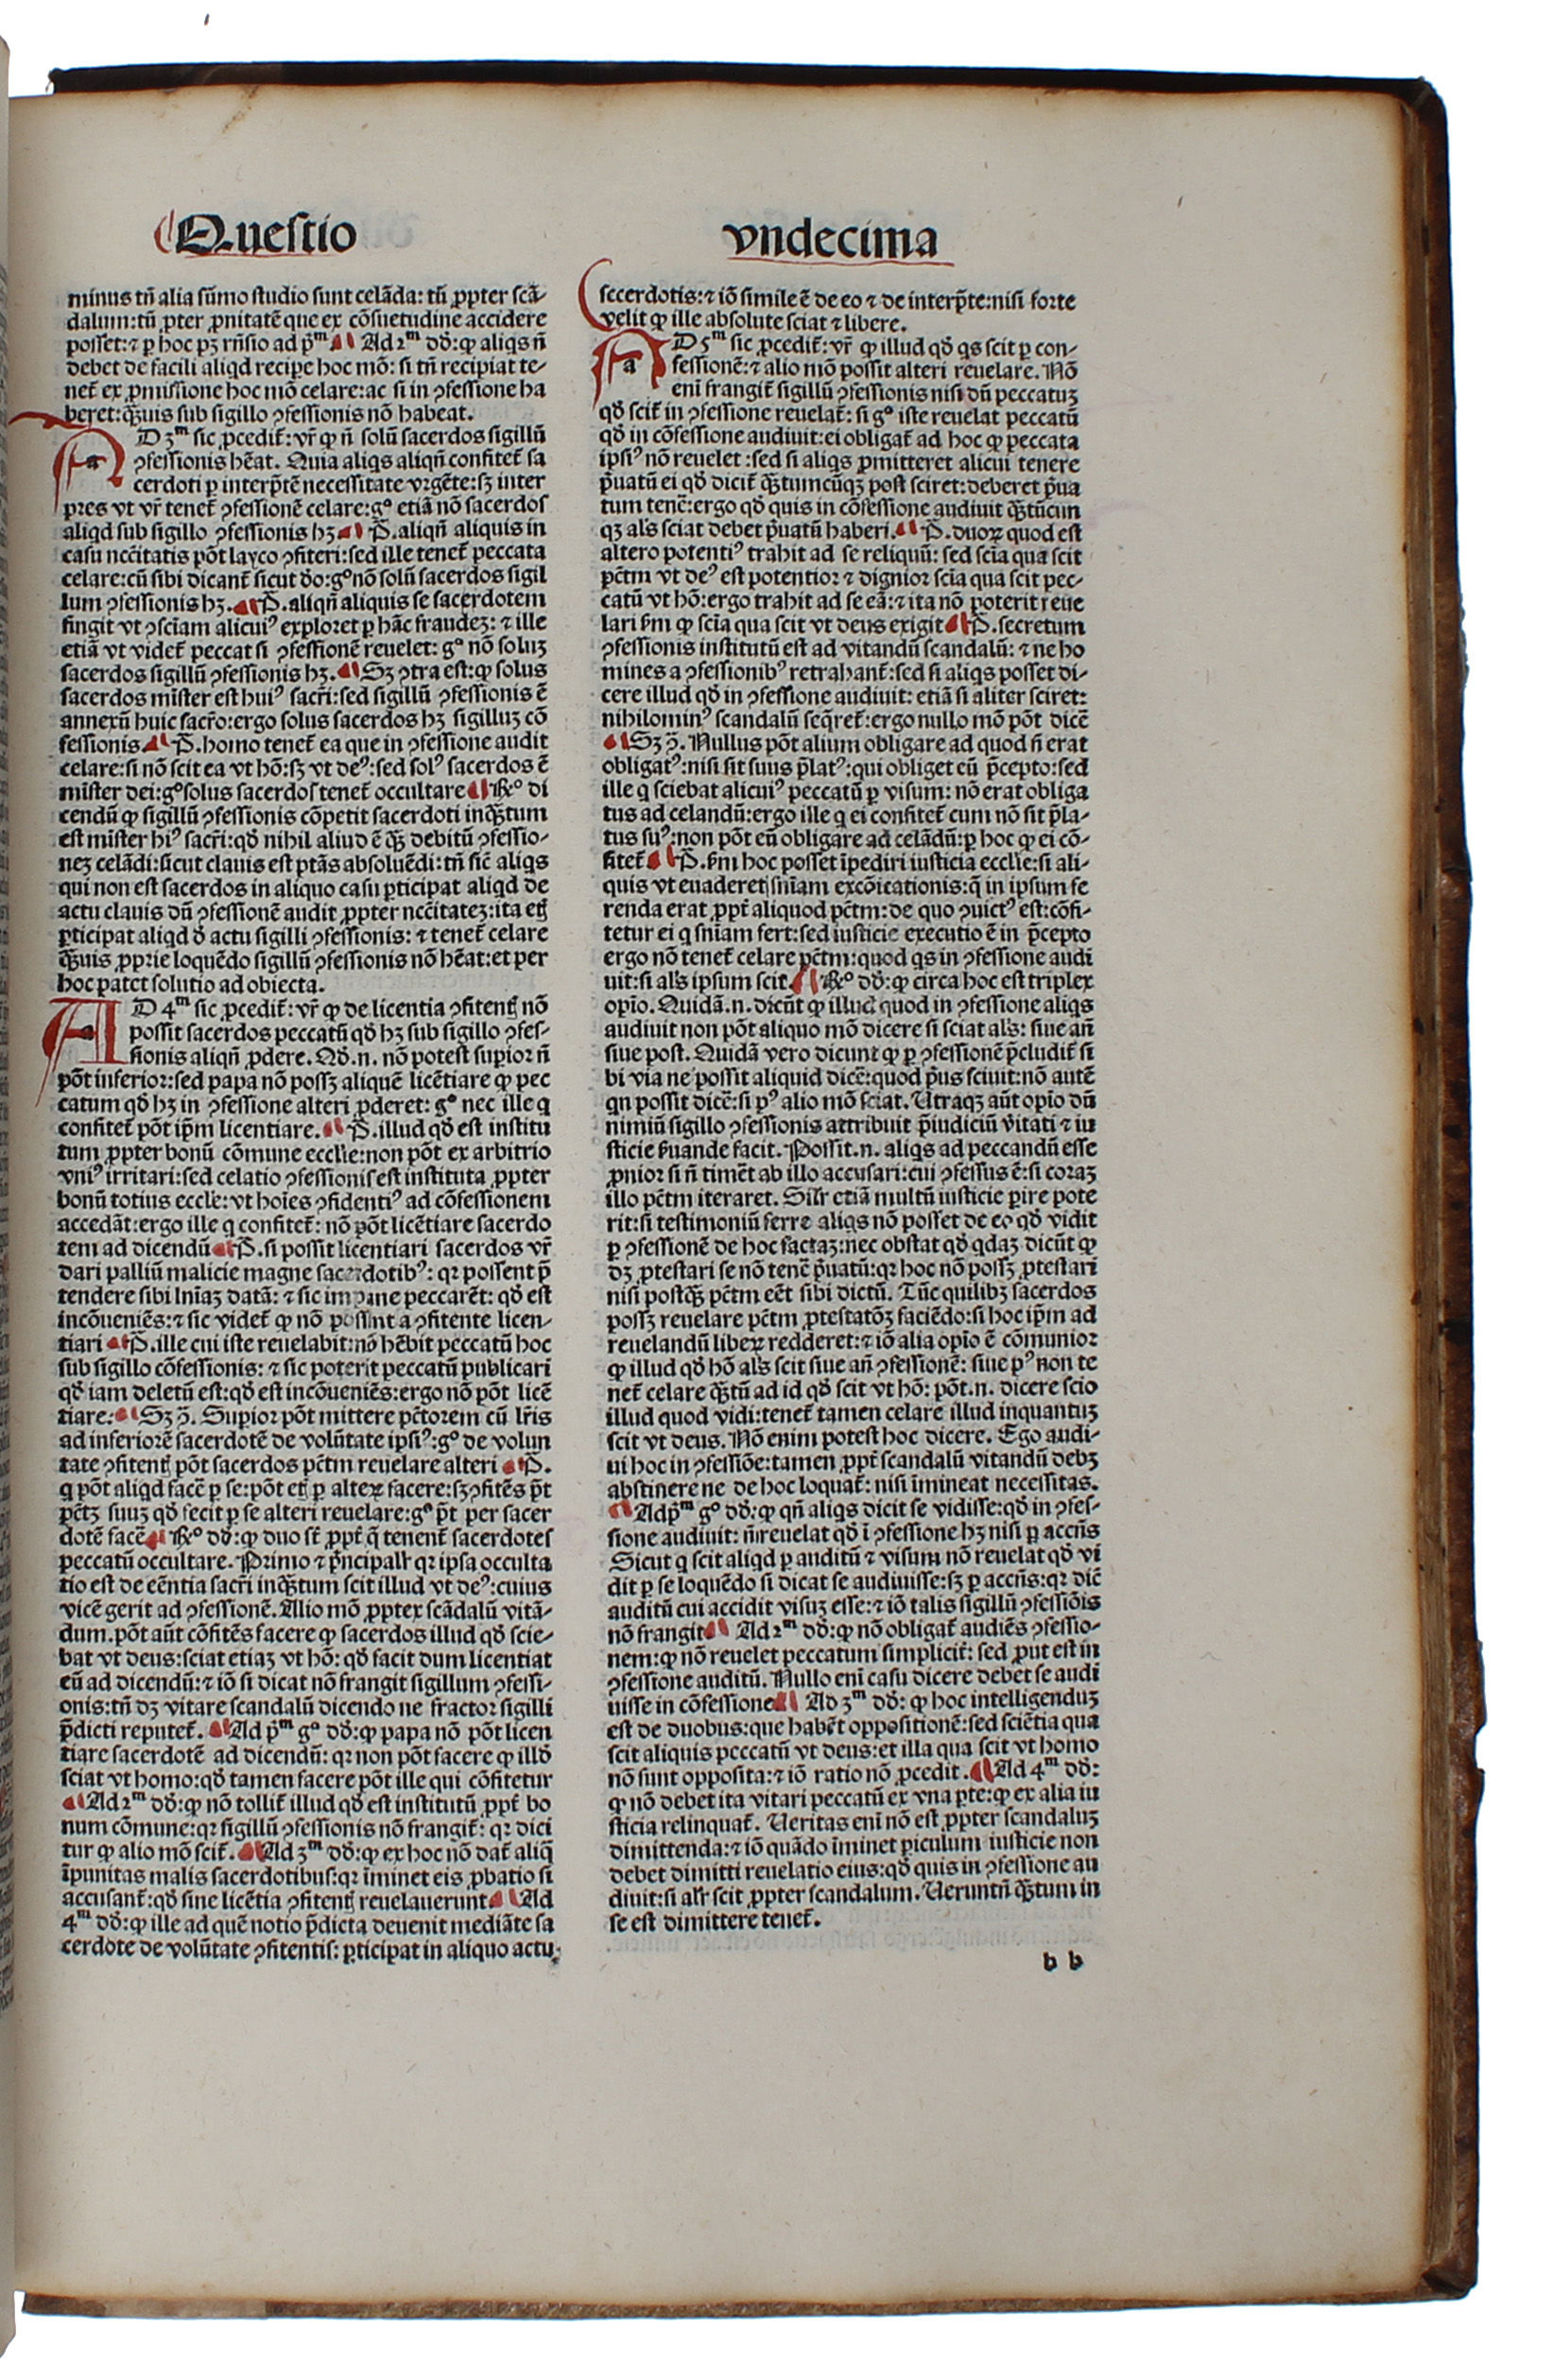 Questio
vndecima
minus tñ alia sũmo studio sunt celãda: tũ ꝓpter scã-
dalum: tũ ꝓpter ꝓnitatẽ que ex cõsuetudine accidere
posset: ⁊ ꝑ hoc pꝫ rñsio ad p̃ᵐ Ad 2ᵐ dõ: ꝙ aliqs ñ
debet de facili aliqd recipe hoc mõ: si tñ recipiat te-
net̃ ex ꝓmissione hoc mõ celare: ac si in ꝯfessione ha
beret: q̃uis sub sigillo ꝯfessionis nõ habeat.
AD 3ᵐ sic ꝓcedit̃: vr̃ ꝙ ñ solũ sacerdos sigillũ
ꝯfessionis hẽat. Quia aliqs aliqñ confitet̃ sa
cerdoti ꝑ interp̃tẽ necessitate vrgẽte: sꝫ inter
pres vt vr̃ tenet̃ ꝯfessionẽ celare: gᵒ etiã nõ sacerdos
aliqd sub sigillo ꝯfessionis hꝫ P̃. aliqñ aliquis in
casu nccitatis põt layco ꝯfiteri: sed ille tenet̃ peccata
celare: cũ sibi dicant̃ sicut do: gᵒ nõ solũ sacerdos sigil
lum ꝯfessionis hꝫ. P̃. aliqñ aliquis se sacerdotem
fingit vt ꝯsciam alicuiꝰ exploret ꝑ hãc fraudeꝫ: ⁊ ille
etiã vt videt̃ peccat si ꝯfessionẽ reuelet: gᵒ nõ soluꝫ
sacerdos sigillũ ꝯfessionis hꝫ. Sꝫ ꝯtra est: ꝙ solus
sacerdos mister est huiꝰ sacr̃i: sed sigillũ ꝯfessionis ẽ
annexũ huic sacr̃o: ergo solus sacerdos hꝫ sigilluꝫ cõ
fessionis P̃. homo tenet̃ ea que in ꝯfessione audit
celare: si nõ scit ea vt hõ: sꝫ vt deꝰ: sed solꝰ sacerdos ẽ
mister dei: gᵒ solus sacerdos tenet̃ occultare R̃ᵒ di
cendũ ꝙ sigillũ ꝯfessionis cõpetit sacerdoti inq̃tum
est mister hiꝰ sacr̃i: qd nihil aliud ẽ q̃ debitũ ꝯfessio-
neꝫ celãdi: sicut clauis est ptãs absoluẽdi: tñ sic̃ aliqs
qui non est sacerdos in aliquo casu ꝑticipat aliqd de
actu clauis dũ ꝯfessionẽ audit ꝓpter nccitateꝫ: ita etĩ
ꝑticipat aliqd d̃ actu sigilli ꝯfessionis: ⁊ tenet̃ celare
q̃uis ꝓprie loquẽdo sigillũ ꝯfessionis nõ hẽat: et per
hoc patet solutio ad obiecta.
AD 4ᵐ sic ꝓcedit̃: vr̃ ꝙ de licentia ꝯfitentĩ nõ
possit sacerdos peccatũ qd hꝫ sub sigillo ꝯfes-
sionis aliqñ ꝓdere. Qd.n. nõ potest supior ñ
põt inferior: sed papa nõ possꝫ aliquẽ licẽtiare ꝙ pec
catum qd hꝫ in ꝯfessione alteri ꝓderet: gᵒ nec ille q
confitet̃ põt ip̃m licentiare. P̃. illud qd est institu
tum ꝓpter bonũ cõmune ecclie: non põt ex arbitrio
vniꝰ irritari: sed celatio ꝯfessionis est instituta ꝓpter
bonũ totius eccle: vt hoĩes ꝯfidentiꝰ ad cõfessionem
accedãt: ergo ille q confitet̃: nõ põt licẽtiare sacerdo
tem ad dicendũ P̃. si possit licentiari sacerdos vr̃
dari palliũ malicie magne sacerdotibꝰ: qꝛ possent p̃
tendere sibi lñiaꝫ datã: ⁊ sic impune peccarẽt: qd est
incõueniẽs: ⁊ sic videt̃ ꝙ nõ possint a ꝯfitente licen-
tiari P̃. ille cui iste reuelabit: nõ hẽbit peccatũ hoc
sub sigillo cõfessionis: ⁊ sic poterit peccatũ publicari
qd iam deletũ est: qd est incõueniẽs: ergo nõ põt licẽ
tiare: Sꝫ ꝯ̃. Supior põt mittere pctorem cũ lr̃is
ad inferiorẽ sacerdotẽ de volũtate ipsiꝰ: gᵒ de volun
tate ꝯfitentĩ põt sacerdos pctm reuelare alteri P̃.
q põt aliqd facẽ ꝑ se: põt etĩ ꝑ alteꝝ facere: sꝫ ꝯfitẽs p̃t
pctꝫ suuꝫ qd fecit ꝑ se alteri reuelare: gᵒ p̃t per sacer
dotẽ facẽ R̃ᵒ dõ: ꝙ duo st̃ ꝓpt̃ q̃ tenent̃ sacerdotes
peccatũ occultare. Primo ⁊ p̃ncipalr̃ qꝛ ipsa occulta
tio est de eẽntia sacr̃i inq̃tum scit illud vt deꝰ: cuius
vicẽ gerit ad ꝯfessionẽ. Alio mõ ꝓpter scãdalũ vitã-
dum. põt aũt cõfitẽs facere ꝙ sacerdos illud qd scie-
bat vt deus: sciat etiaꝫ vt hõ: qd facit dum licentiat
eũ ad dicendũ: ⁊ iõ si dicat nõ frangit sigillum ꝯfessi-
onis: tñ dꝫ vitare scandalũ dicendo ne fractor sigilli
p̃dicti reputet̃. Ad p̃ᵐ gᵒ dõ: ꝙ papa nõ põt licen
tiare sacerdotẽ ad dicendũ: qꝛ non põt facere ꝙ illd
sciat vt homo: qd tamen facere põt ille qui cõfitetur
Ad 2ᵐ dõ: ꝙ nõ tollit̃ illud qd est institutũ ꝓpt̃ bo
num cõmune: qꝛ sigillũ ꝯfessionis nõ frangit̃: qꝛ dici
tur ꝙ alio mõ scit̃. Ad 3ᵐ dõ: ꝙ ex hoc nõ dat̃ aliq̃
ĩpunitas malis sacerdotibus: qꝛ ĩminet eis ꝓbatio si
accusant̃: qd sine licẽtia ꝯfitentĩ reuelauerunt Ad
4ᵐ dõ: ꝙ ille ad quẽ notio p̃dicta deuenit mediãte sa
cerdote de volũtate ꝯfitentis: ꝑticipat in aliquo actu
sccerdotis: ⁊ iõ simile ẽ de eo ⁊ de interp̃te: nisi forte
velit ꝙ ille absolute sciat ⁊ libere.
AD 5ᵐ sic ꝓcedit̃: vr̃ ꝙ illud qd qs scit ꝑ con-
fessionẽ: ⁊ alio mõ possit alteri reuelare. Nõ
eni frangit̃ sigillũ ꝯfessionis nisi dũ peccatuꝫ
qd scit̃ in ꝯfessione reuelat̃: si gᵒ iste reuelat peccatũ
qd in cõfessione audiuit: ei obligat̃ ad hoc ꝙ peccata
ipsiꝰ nõ reuelet: sed si aliqs ꝓmitteret alicui tenere
p̃uatũ ei qd dicit̃ q̃tumcũqꝫ post sciret: deberet p̃ua
tum tenẽ: ergo qd quis in cõfessione audiuit q̃tũcun
qꝫ als sciat debet p̃uatũ haberi. P̃. duoꝝ quod est
altero potentiꝰ trahit ad se reliquũ: sed scia qua scit
pctm vt deꝰ est potentior ⁊ dignior scia qua scit pec-
catũ vt hõ: ergo trahit ad se eã: ⁊ ita nõ poterit reue
lari fm ꝙ scia qua scit vt deus exigit P̃. secretum
ꝯfessionis institutũ est ad vitandũ scandalũ: ⁊ ne ho
mines a ꝯfessionibꝰ retrahant̃: sed si aliqs posset di-
cere illud qd in ꝯfessione audiuit: etiã si aliter sciret:
nihilominꝰ scandalũ seq̃ret̃: ergo nullo mõ põt dicẽ
Sꝫ ꝯ̃. Nullus põt alium obligare ad quod ñ erat
obligatꝰ: nisi sit suus p̃latꝰ: qui obliget eũ p̃cepto: sed
ille q sciebat alicuiꝰ peccatũ ꝑ visum: nõ erat obliga
tus ad celandũ: ergo ille q ei confitet̃ cum nõ sit p̃la-
tus suꝰ: non põt eũ obligare ad celãdũ: ꝑ hoc ꝙ ei cõ-
fitet̃ P̃. fm hoc posset ĩpediri iusticia ecclie: si ali-
quis vt euaderet sniam excõicationis: q̃ in ipsum fe
renda erat ꝓpt̃ aliquod pctm: de quo ꝯuictꝰ est: cõfi-
tetur ei q sniam fert: sed iusticie executio ẽ in p̃cepto
ergo nõ tenet̃ celare pctm: quod qs in ꝯfessione audi
uit: si als ipsum scit. R̃ᵒ dõ: ꝙ circa hoc est triplex
opĩo. Quidã.n. dicũt ꝙ illud quod in ꝯfessione aliqs
audiuit non põt aliquo mõ dicere si sciat als: siue añ
siue post. Quidã vero dicunt ꝙ ꝑ ꝯfessionẽ p̃cludit̃ si
bi via ne possit aliquid dicẽ: quod p̃us sciuit: nõ autẽ
qn possit dicẽ: si pꝰ alio mõ sciat. Utraqꝫ aũt opĩo dũ
nimiũ sigillo ꝯfessionis attribuit p̃iudiciũ ṽitati ⁊ iu
sticie s̃uande facit. Possit.n. aliqs ad peccandũ esse
ꝓnior si ñ timẽt ab illo accusari: cui ꝯfessus ẽ: si coraꝫ
illo pctm iteraret. Silr̃ etiã multũ iusticie ꝑire pote
rit: si testimoniũ ferre aliqs nõ posset de eo qd vidit
ꝑ ꝯfessionẽ de hoc factaꝫ: nec obstat qd qdaꝫ dicũt ꝙ
dꝫ ꝓtestari se nõ tenẽ p̃uatũ: qꝛ hoc nõ possꝫ ꝓtestari
nisi postq̃ pctm eẽt sibi dictũ. Tũc quilibꝫ sacerdos
possꝫ reuelare pctm ꝓtestatõꝫ faciẽdo: si hoc ip̃m ad
reuelandũ libeꝝ redderet: ⁊ iõ alia opĩo ẽ cõmunior
ꝙ illud qd hõ als scit siue añ ꝯfessionẽ: siue pꝰ non te
net̃ celare q̃tũ ad id qd scit vt hõ: põt.n. dicere scio
illud quod vidi: tenet̃ tamen celare illud inquantuꝫ
scit vt deus. Nõ enim potest hoc dicere. Ego audi-
ui hoc in ꝯfessiõe: tamen ꝓpt̃ scandalũ vitandũ debꝫ
abstinere ne de hoc loquat̃: nisi ĩmineat necessitas.
Ad p̃ᵐ gᵒ dõ: ꝙ qñ aliqs dicit se vidisse: qd in ꝯfes-
sione audiuit: ñ reuelat qd ĩ ꝯfessione hꝫ nisi ꝑ accñs
Sicut q scit aliqd ꝑ auditũ ⁊ visum nõ reuelat qd vi
dit ꝑ se loquẽdo si dicat se audiuisse: sꝫ ꝑ accñs: qꝛ dic̃
auditũ cui accidit visuꝫ esse: ⁊ iõ talis sigillũ ꝯfessiõis
nõ frangit Ad 2ᵐ dõ: ꝙ nõ obligat̃ audiẽs ꝯfessio-
nem: ꝙ nõ reuelet peccatum simplicit̃: sed ꝓut est in
ꝯfessione auditũ. Nullo eni casu dicere debet se audi
uisse in cõfessione Ad 3ᵐ dõ: ꝙ hoc intelligenduꝫ
est de duobus: que habẽt oppositionẽ: sed sciẽtia qua
scit aliquis peccatũ vt deus: et illa qua scit vt homo
nõ sunt opposita: ⁊ iõ ratio nõ ꝓcedit. Ad 4ᵐ dõ:
ꝙ nõ debet ita vitari peccatũ ex vna ꝑte: ꝙ ex alia iu
sticia relinquat̃. Ueritas eni nõ est ꝓpter scandaluꝫ
dimittenda: ⁊ iõ quãdo ĩminet ꝑiculum iusticie non
debet dimitti reuelatio eius: qd quis in ꝯfessione au
diuit: si alr̃ scit ꝓpter scandalum. Ueruntñ q̃tum in
se est dimittere tenet̃.
b b